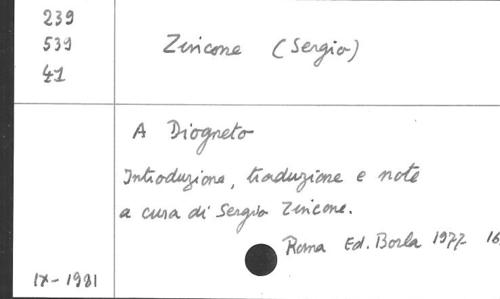 239
539
41
Zincone (Sergio)
A Diogneto
Introduzione, traduzione e note
a cura di Sergio Zincone.
Roma Ed. Borla 1977 16
IX-1981